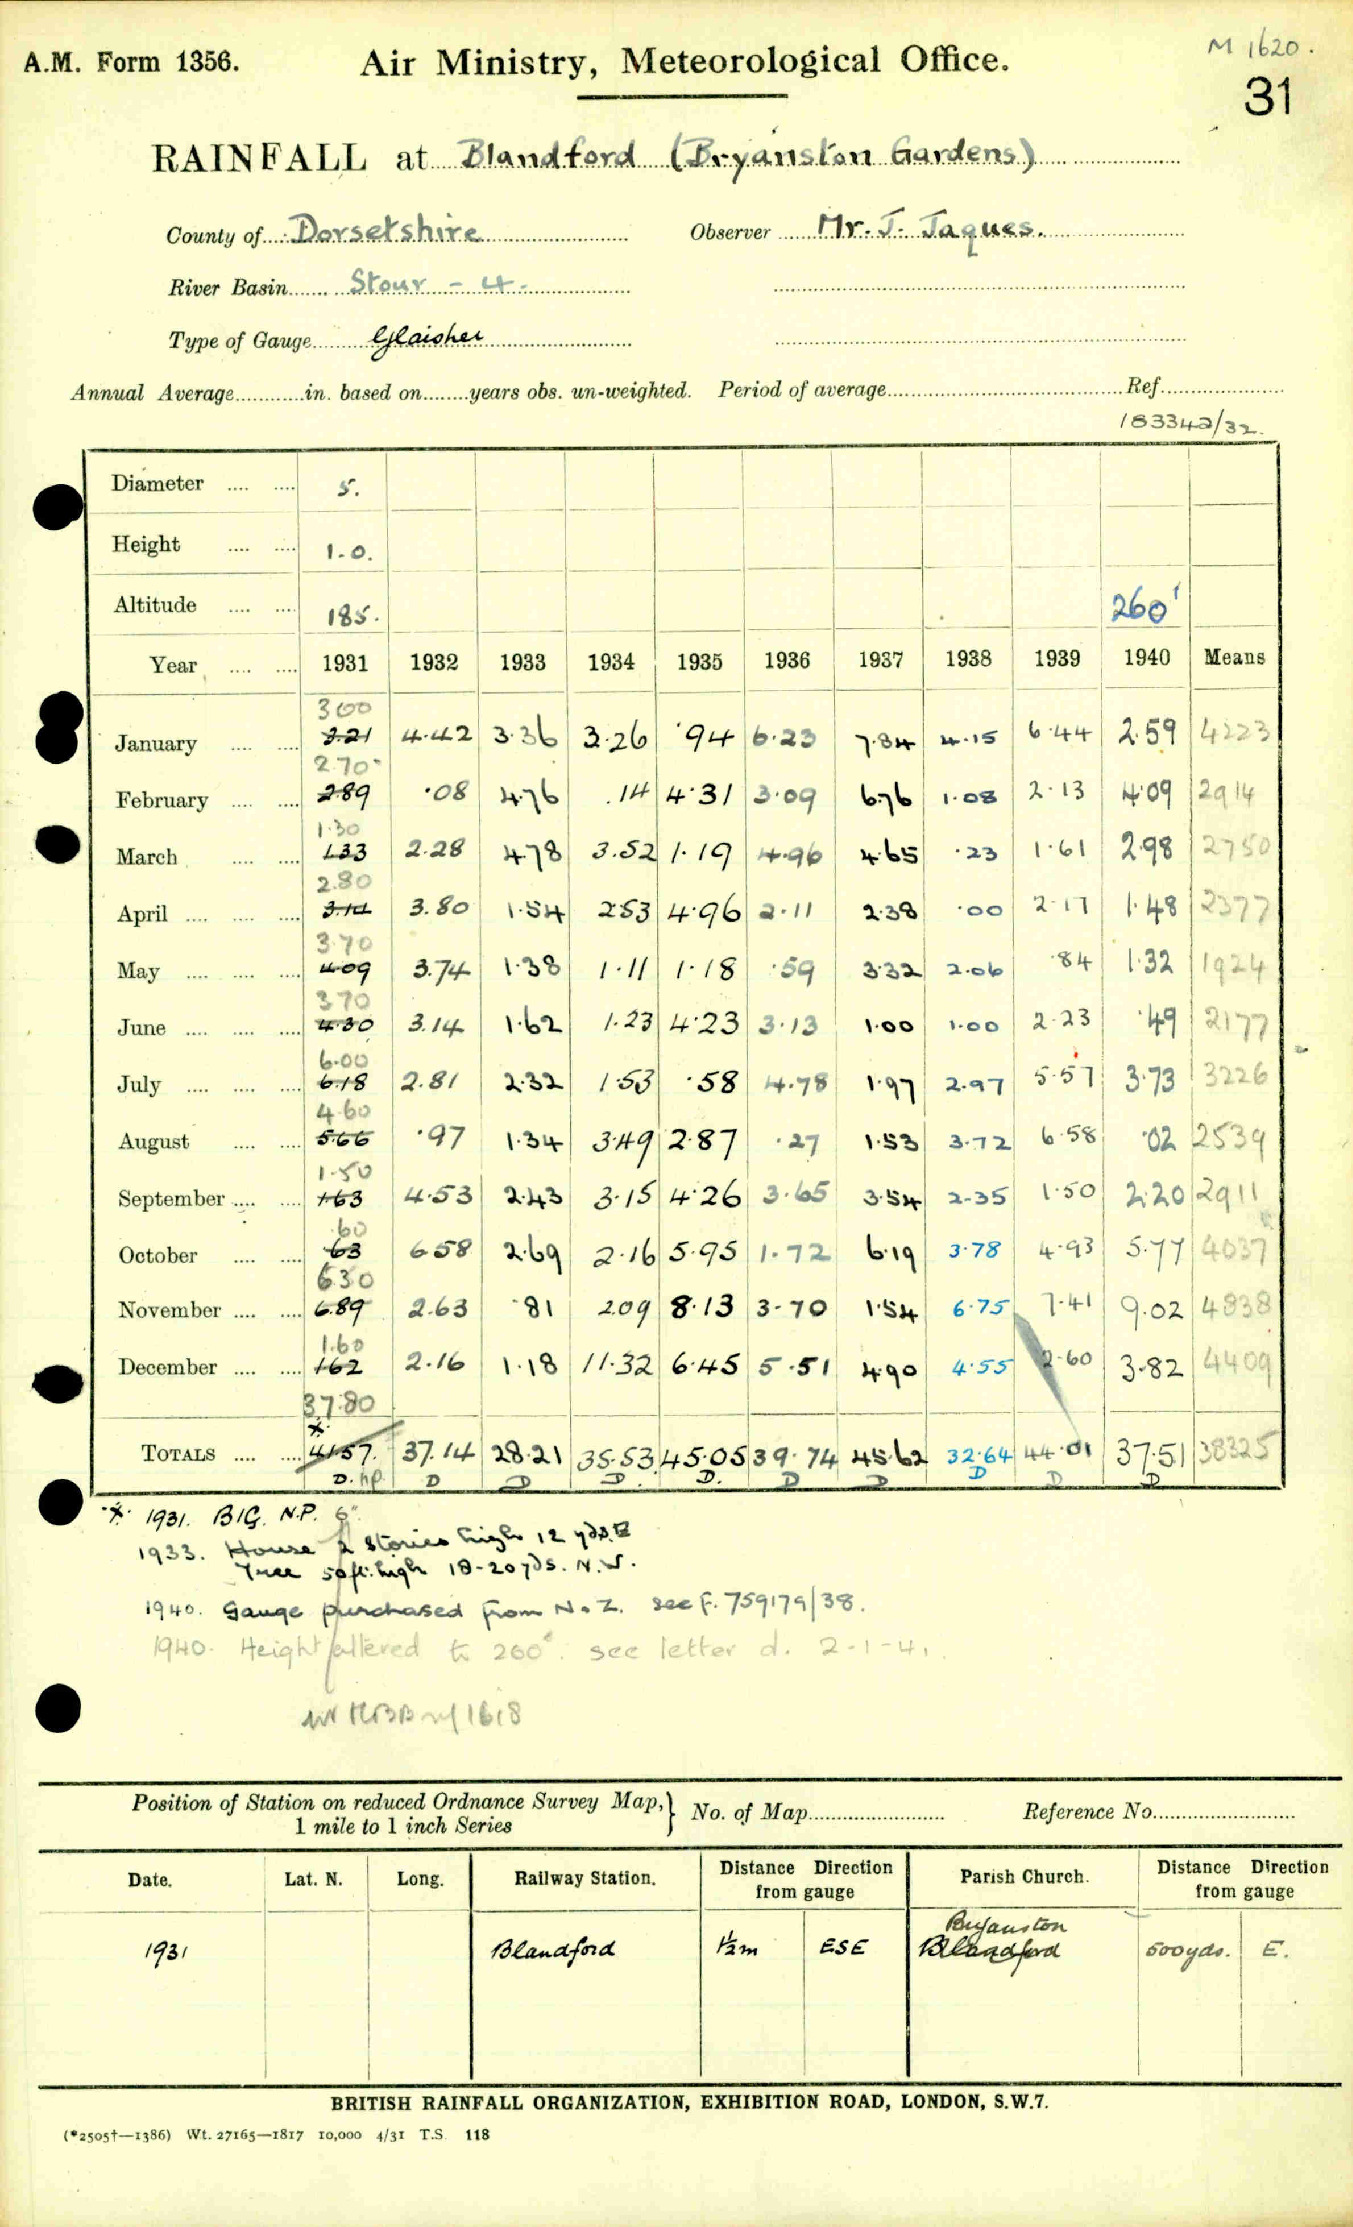 A.M. Form 1356.
Air Ministry, Meteorological Office.
M 1620.
31
RAINFALL at Blandford (Bryanston Gardens)
County of Dorsetshire Observer Mr. J. Jaques.
River Basin Stour - 4.
Type of Gauge Glaisher
Annual Average in. based on years obs. un-weighted. Period of average Ref.
183342/32.
Diameter 5.
Height 1-0.
Altitude 185. 260'
Year 1931 1932 1933 1934 1935 1936 1937 1938 1939 1940 Means
3.00
January 3.21 4.42 3.36 3.26 .94 6.23 7.84 4.15 6.44 2.59 4223
2.70
February 2.89 .08 4.76 .14 4.31 3.09 6.76 1.08 2.13 4.09 2914
1.30
March 1.33 2.28 4.78 3.52 1.19 4.96 4.65 .23 1.61 2.98 2750
2.80
April 3.14 3.80 1.54 2.53 4.96 2.11 2.38 .00 2.17 1.48 2377
3.70
May 4.09 3.74 1.38 1.11 1.18 .59 3.32 2.06 .84 1.32 1924
3.70
June 4.30 3.14 1.62 1.23 4.23 3.13 1.00 1.00 2.23 .49 2177
6.00
July 6.18 2.81 2.32 1.53 .58 4.78 1.97 2.97 5.57 3.73 3226
4.60
August 5.66 .97 1.34 3.49 2.87 .27 1.53 3.72 6.58 .02 2539
1.50
September 1.63 4.53 2.43 3.15 4.26 3.65 3.54 2.35 1.50 2.20 2911
.60
October 63 6.58 2.69 2.16 5.95 1.72 6.19 3.78 4.93 5.77 4037
6.30
November 6.89 2.63 .81 2.09 8.13 3.70 1.54 6.75 7.41 9.02 4838
1.60
December 1.62 2.16 1.18 11.32 6.45 5.51 4.90 4.55 2.60 3.82 4409
37.80
*
TOTALS 41.57 37.14 28.21 35.53 45.05 39.74 45.62 32.64 44.01 37.51 38325
D. hp. D D D. D. D D D D D
* 1931. BIG. N.P. 6".
1933. House 2 stories high 12 yds. E
Tree 50ft. high 18-20yds. N.W.
1940. Gauge purchased from N.Z. see f. 759179/38.
1940. Height altered to 260'. see letter d. 2-1-41
Position of Station on reduced Ordnance Survey Map, 1 mile to 1 inch Series } No. of Map Reference No.
Date. Lat. N. Long. Railway Station. Distance Direction from gauge Parish Church. Distance Direction from gauge
Bryanston
1931 Blandford 1/2m ESE Blandford 500yds. E.
BRITISH RAINFALL ORGANIZATION, EXHIBITION ROAD, LONDON, S.W.7.
(*2505†—1386) Wt. 27165—1817 10,000 4/31 T.S. 118